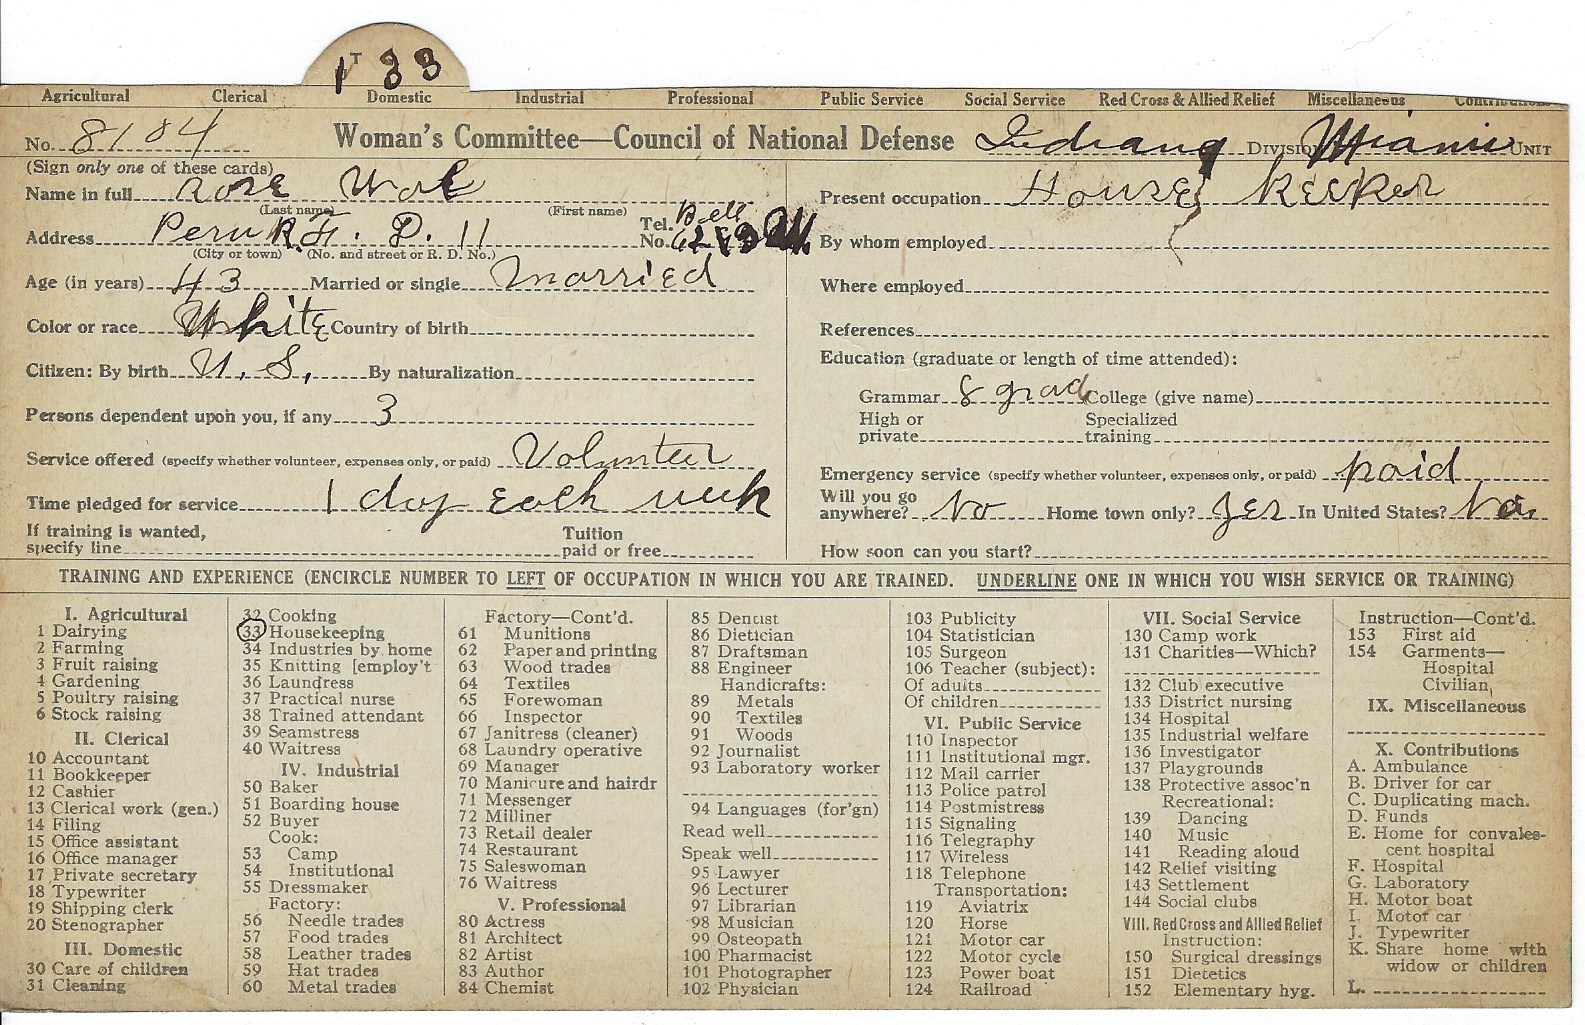 1T 33
Agricultural Clerical Domestic Industrial Professional Public Service Social Service Red Cross & Allied Relief Miscellaneous Contributions
No. 8184 Woman's Committee—Council of National Defense Indiana Division Miami Unit
(Sign only one of these cards)
Name in full
(Last name) (First name)
Address Peru R. F. D. 11 Tel. No. Bell
(City or town) (No. and street or R. D. No.)
Age (in years) 43 Married or single Married
Color or race White Country of birth
Citizen: By birth U. S. By naturalization
Persons dependent upon you, if any 3
Service offered (specify whether volunteer, expenses only, or paid) Volunteer
Time pledged for service 1 day each week
If training is wanted, specify line Tuition paid or free
Present occupation House Keeker
By whom employed
Where employed
References
Education (graduate or length of time attended):
Grammar 8 grad College (give name)
High or private Specialized training
Emergency service (specify whether volunteer, expenses only, or paid) paid
Will you go anywhere? No Home town only? Yes In United States? No
How soon can you start?
TRAINING AND EXPERIENCE (ENCIRCLE NUMBER TO LEFT OF OCCUPATION IN WHICH YOU ARE TRAINED. UNDERLINE ONE IN WHICH YOU WISH SERVICE OR TRAINING)
I. Agricultural
1 Dairying
2 Farming
3 Fruit raising
4 Gardening
5 Poultry raising
6 Stock raising
II. Clerical
10 Accountant
11 Bookkeeper
12 Cashier
13 Clerical work (gen.)
14 Filing
15 Office assistant
16 Office manager
17 Private secretary
18 Typewriter
19 Shipping clerk
20 Stenographer
III. Domestic
30 Care of children
31 Cleaning
32 Cooking
33 Housekeeping
34 Industries by home
35 Knitting [employ't
36 Laundress
37 Practical nurse
38 Trained attendant
39 Seamstress
40 Waitress
IV. Industrial
50 Baker
51 Boarding house
52 Buyer
Cook:
53 Camp
54 Institutional
55 Dressmaker
Factory:
56 Needle trades
57 Food trades
58 Leather trades
59 Hat trades
60 Metal trades
Factory—Cont'd.
61 Munitions
62 Paper and printing
63 Wood trades
64 Textiles
65 Forewoman
66 Inspector
67 Janitress (cleaner)
68 Laundry operative
69 Manager
70 Manicure and hairdr
71 Messenger
72 Milliner
73 Retail dealer
74 Restaurant
75 Saleswoman
76 Waitress
V. Professional
80 Actress
81 Architect
82 Artist
83 Author
84 Chemist
85 Dentist
86 Dietician
87 Draftsman
88 Engineer
Handicrafts:
89 Metals
90 Textiles
91 Woods
92 Journalist
93 Laboratory worker
94 Languages (for'gn)
Read well
Speak well
95 Lawyer
96 Lecturer
97 Librarian
98 Musician
99 Osteopath
100 Pharmacist
101 Photographer
102 Physician
103 Publicity
104 Statistician
105 Surgeon
106 Teacher (subject):
Of adults
Of children
VI. Public Service
110 Inspector
111 Institutional mgr.
112 Mail carrier
113 Police patrol
114 Postmistress
115 Signaling
116 Telegraphy
117 Wireless
118 Telephone
Transportation:
119 Aviatrix
120 Horse
121 Motor car
122 Motor cycle
123 Power boat
124 Railroad
VII. Social Service
130 Camp work
131 Charities—Which?
132 Club executive
133 District nursing
134 Hospital
135 Industrial welfare
136 Investigator
137 Playgrounds
138 Protective assoc'n
Recreational:
139 Dancing
140 Music
141 Reading aloud
142 Relief visiting
143 Settlement
144 Social clubs
VIII. Red Cross and Allied Relief
Instruction:
150 Surgical dressings
151 Dietetics
152 Elementary hyg.
Instruction—Cont'd.
153 First aid
154 Garments—
Hospital
Civilian
IX. Miscellaneous
X. Contributions
A. Ambulance
B. Driver for car
C. Duplicating mach.
D. Funds
E. Home for convales-
cent hospital
F. Hospital
G. Laboratory
H. Motor boat
I. Motor car
J. Typewriter
K. Share home with
widow or children
L.